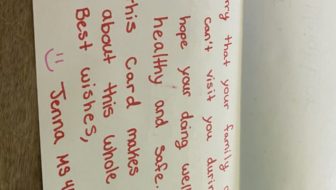 that your family
can't visit you
hope your doing well
healthy and safe.
Card makes
about this whole
Best wishes,
Jenna MS